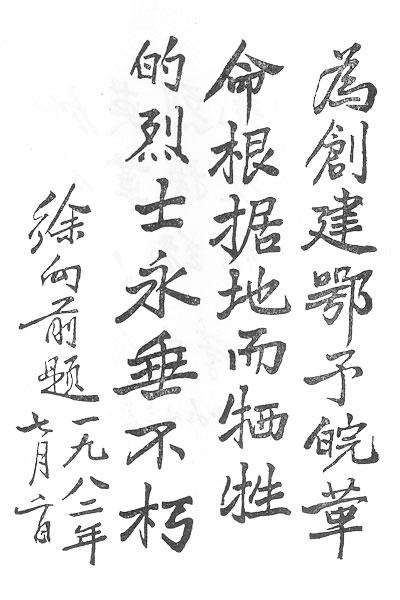 為創建鄂予皖革
命根据地而牺牲
的烈士永垂不朽
徐向前题
一九八二年
七月日